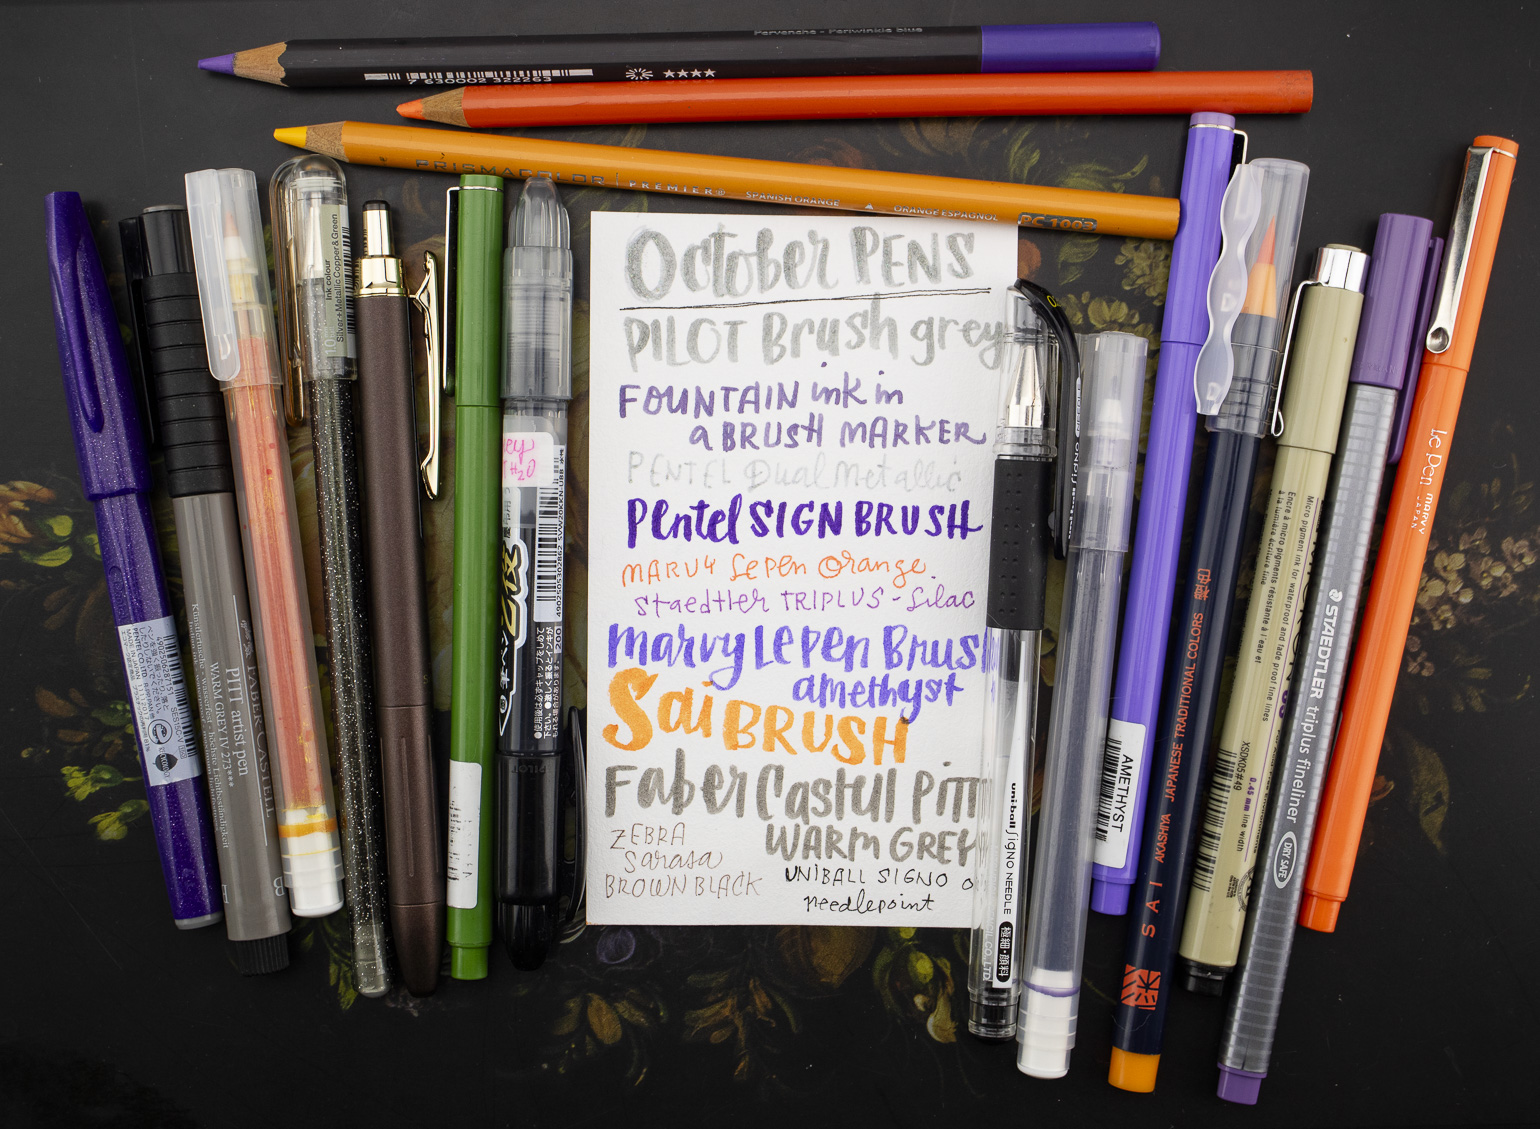 Pervenche - Periwinkle blue
7 630002 322263
PRISMACOLOR | PREMIER® SPANISH ORANGE ▲ ORANGE ESPAGNOL PC 1003
October PENS
PILOT Brush grey
FOUNTAIN ink in
a BRUSH MARKER
PENTEL Dual Metallic
Pentel SIGN BRUSH
MARVY Le Pen Orange
Staedtler TRIPLUS - Lilac
Marvy Le Pen Brush
amethyst
Sai BRUSH
Faber Castell Pitt
WARM GREY
ZEBRA
Sarasa
BROWN BLACK
UNIBALL SIGNO
needlepoint
FABER-CASTELL
PITT artist pen
WARM GREY IV 273***
Ink colour
Silver+Metallic Copper&Green
H₂O
PILOT
uni-ball Signo NEEDLE
極細・顔料
AMETHYST
SAI AKASHIYA JAPANESE TRADITIONAL COLORS
Micro pigment ink for waterproof and fade proof fine lines
XSDK05#49
0.45 mm line width
STAEDTLER triplus fineliner
DRY SAFE
Le Pen MARVY
JAPAN